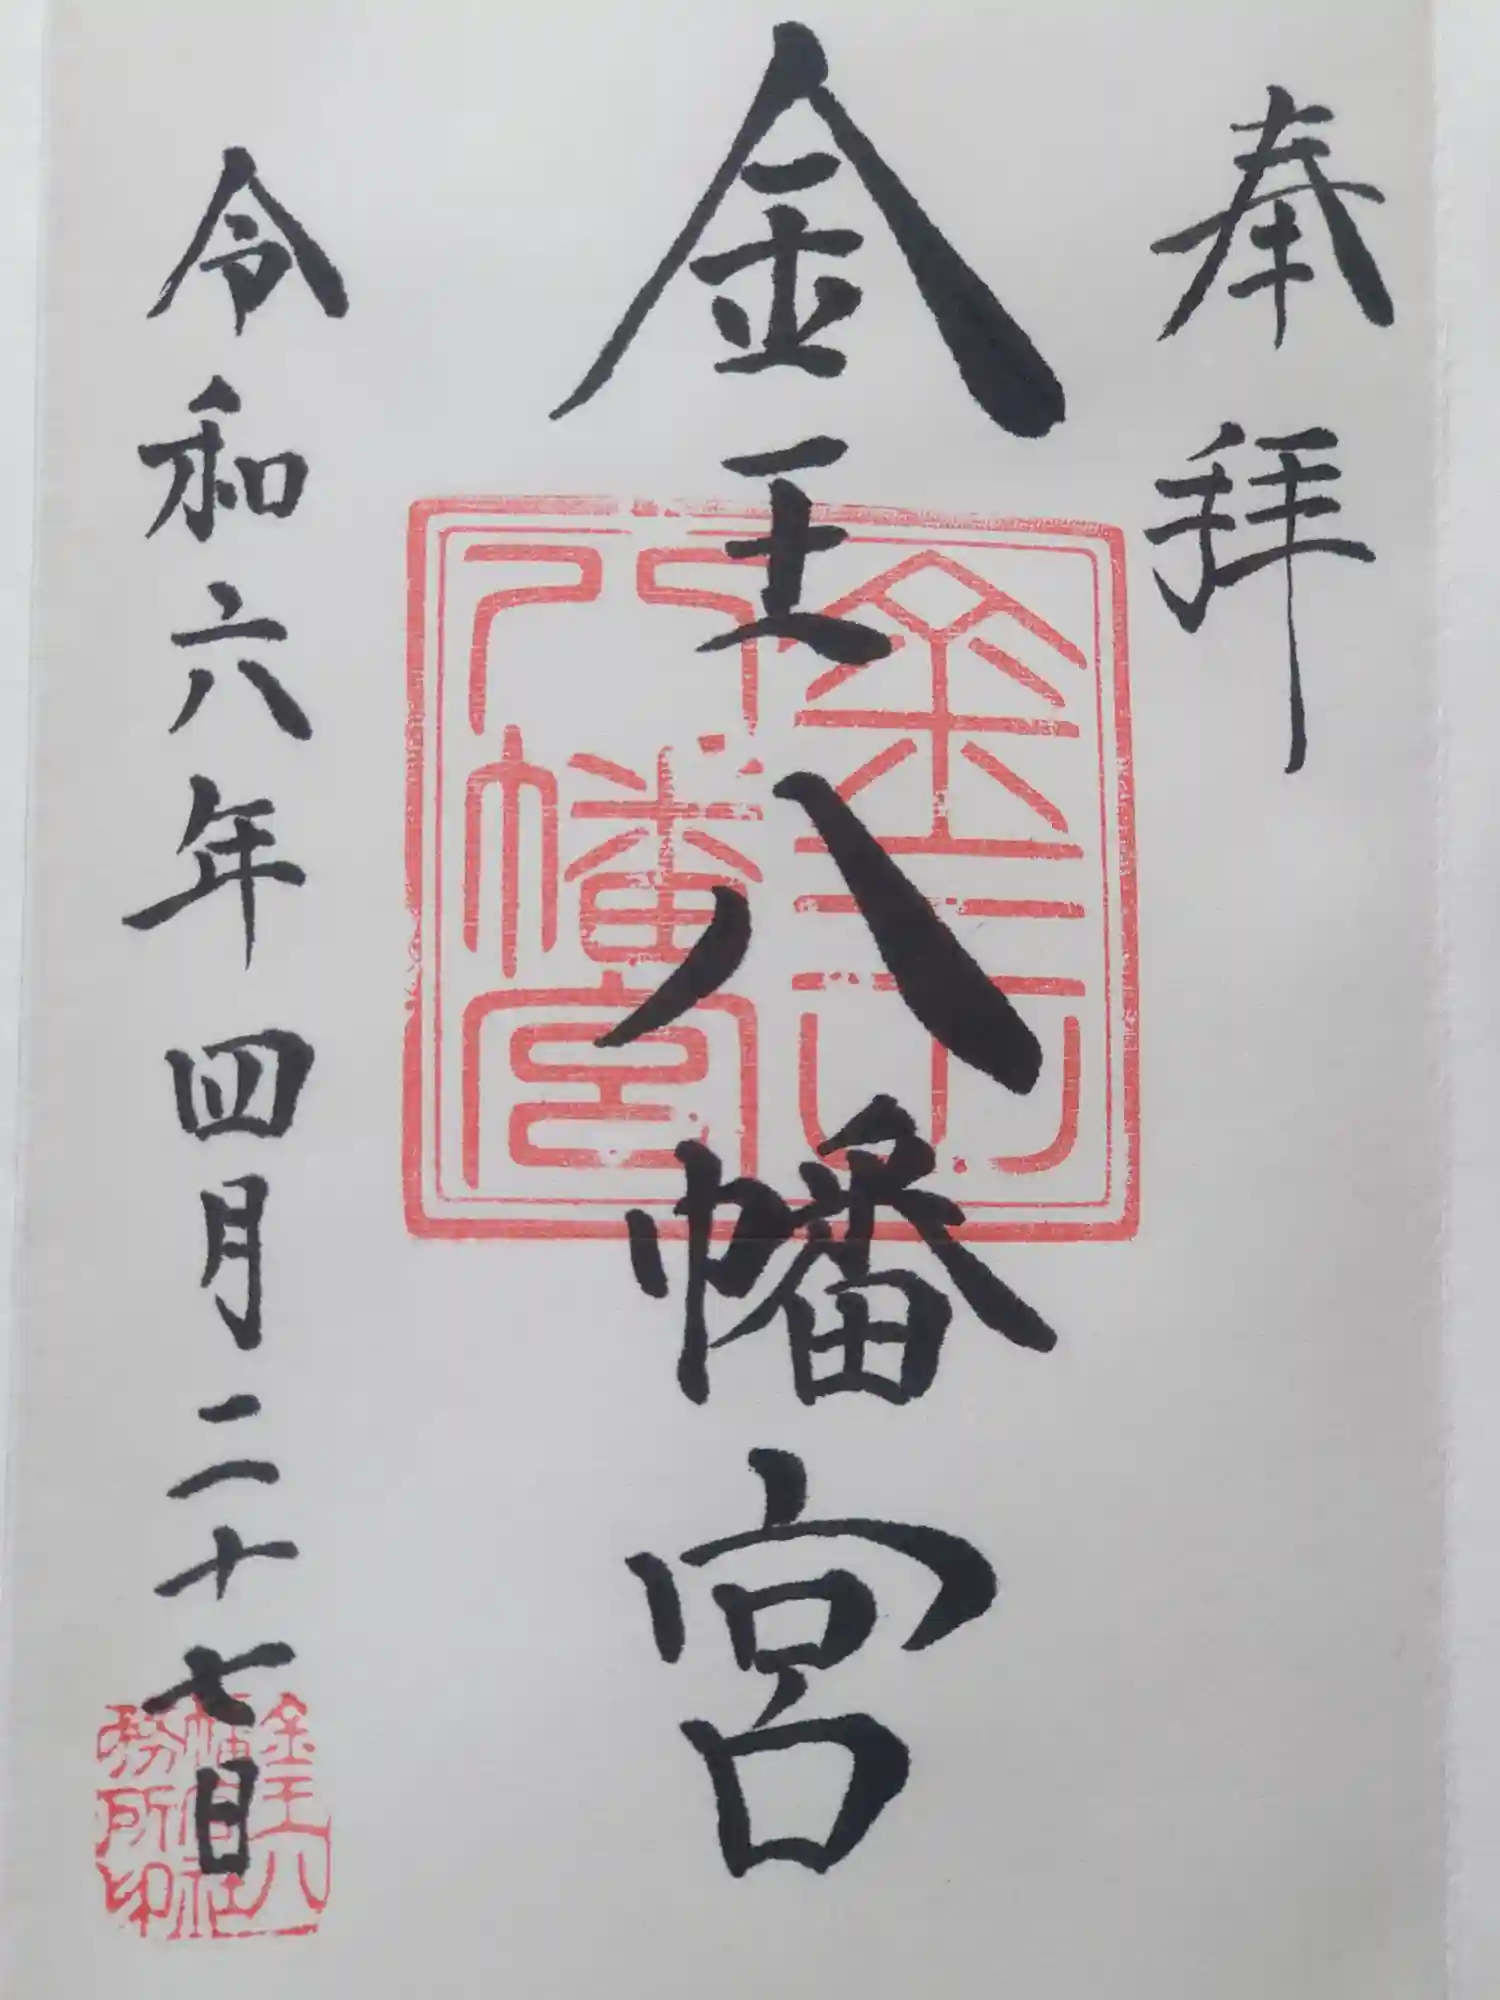 奉拝
金王八幡宮
金王
八幡宮
令和六年四月二十七日
金王八
幡宮社
務所印